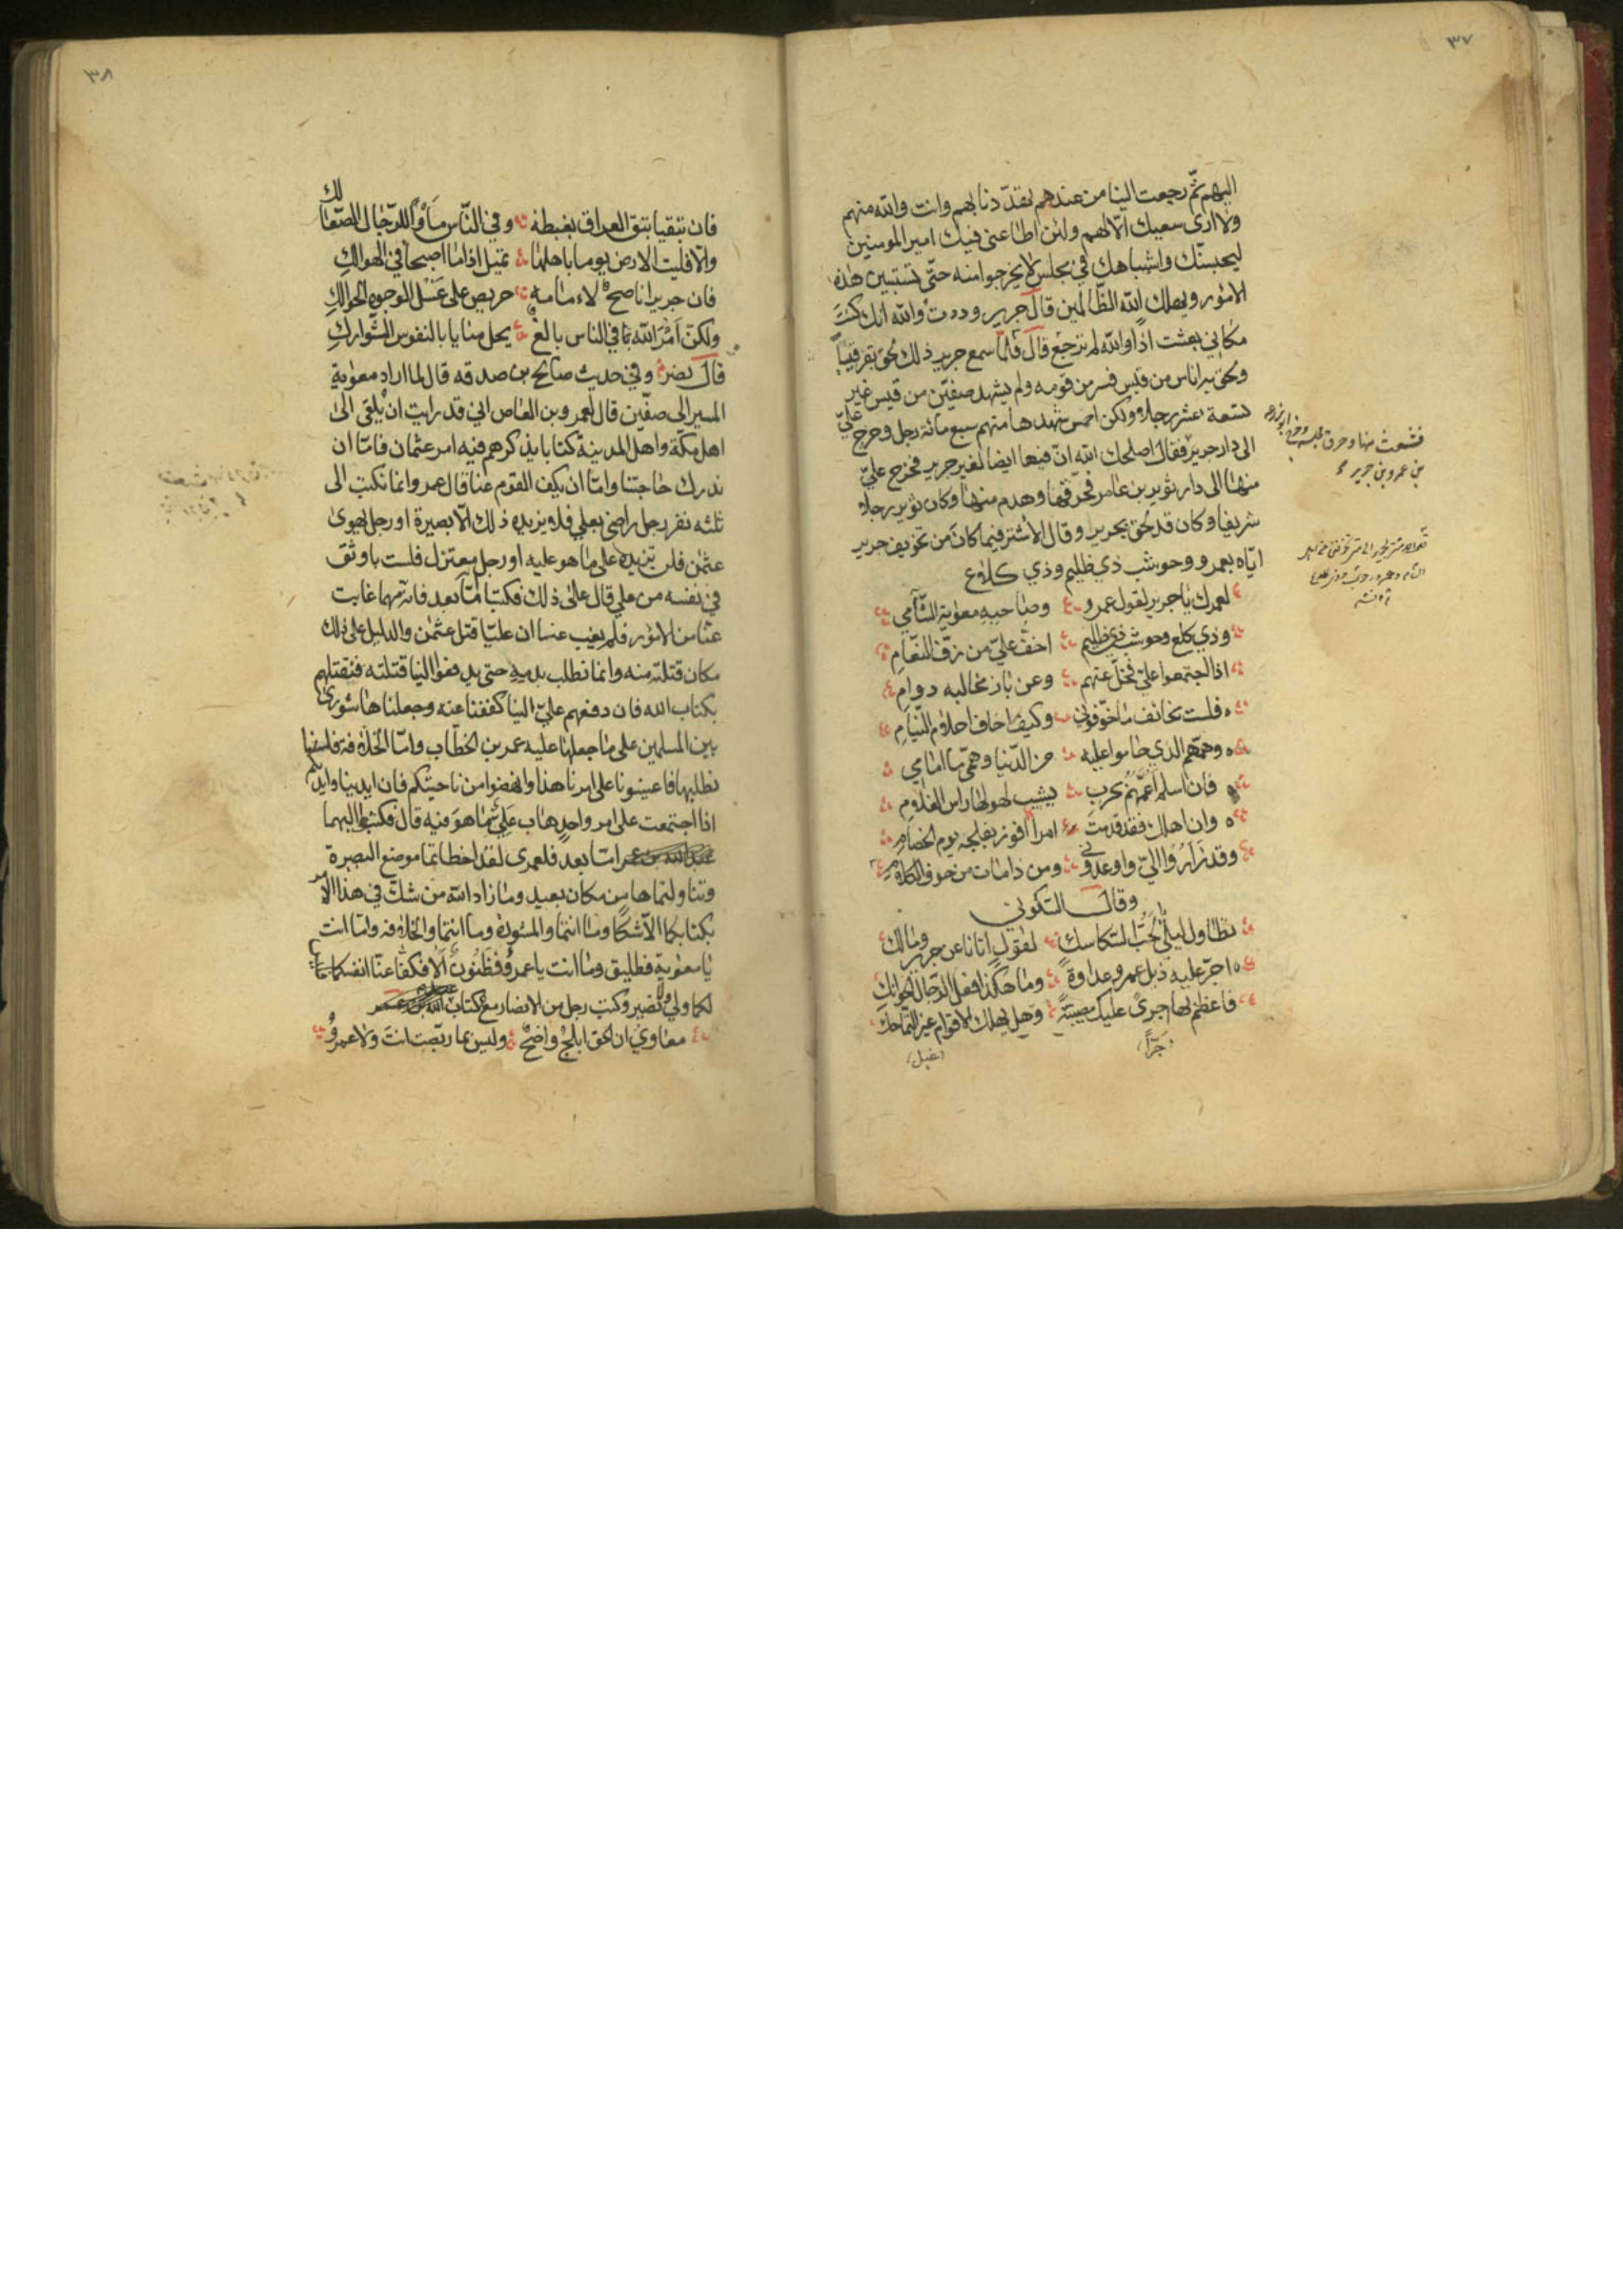 ٣٧
اليهم ثمّ رجعت الينا من عندهم تهدّدنا بهم وانت والله منهم
ولا ارى سعيك الّا لهم ولئن اطاعنى فيك امير المومنين
ليحبسنّك واشباهك فى مجلس لا يخرجوا منه حتّى تستبين هذه
الامور ويهلك الله الظّالمين قال جرير وددت والله انك كنت
مكانى بعثت اذًا والله لم ترجع قال فلمّا سمع جرير ذلك لحق بقرقيسا
ولحق به اناس من قيس فسر من قومه ولم يشهد صفيّن من قيس غير
تسعة عشر رجلا ولكن احمس شهدها منهم سبع مائة رجل وخرج علىّ
الى دار جرير فقال اصلحك الله انّ فيها ايضا لغير جرير فخرج علىّ
منها الى دار ثوير بن عامر فحرّقها وهدم منها وكان ثوير رجلا
شريفا وكان قد لحق بجرير وقال الاشتر فيما كان من تخويف جرير
ايّاه بعمرو وحوشب ذي ظليم وذي كلاع
لعمرك يا جرير لقول عمرو وصاحبه معوية الشّآمي
وذي كلع وحوشب ذي ظليم اخفّ علىّ من زفّ النّعام
اذا اجتمعوا علىّ فخلّ عنهم وعن باز مخالبه دوام
فلست بخائف ما خوّفونى وكيف اخاف احلام النّيام
وهمّهم الذي حاموا عليه من الدّنيا وهمّى ما امامي
فان اسلم اعمّهم بحرب يشيب لهولها راس الغلام
وان اهلك فقد قدمت امرا افوز بفلجه يوم الخصام
وقد زاروا الىّ واوعدونى ومن ذا مات من خوف الكلام
وقال السّكونى
تطاول ليلى يا لحبّ السّكاسك لقول اتانا عن جرير ومالك
اجرّ عليه ذيل عمرو عداوة وما هكذا فعل الرّجال الحوانك
فاعظم بها حرى عليك مصيبة وهل يهلك الاقوام غير التماحك
(جرّا)
(غبل)
فشعث منها وحرق مجلسه وخرج ابو زرعه
بن عمرو بن جرير
٣٨
فان تبقيا تبق العراق بغبطة وفى النّاس مأوًا للرّجال الصّعالك
والّا فليت الارض يوما باهلها تميل اذا ما اصبحا فى الهوالك
فان جريرا ناصح لامامه حريص على غسل الوجوه الحوالك
ولكنّ امر الله فى الناس بالغ يحل منايا بالنفوس الشّوارك
قال نصر وفى حديث صالح بن صدقه قال لما اراد معوية
المسير الى صفّين قال لعمرو بن العاص انى قد رايت ان نلقى الى
اهل مكّة واهل المدينة كتابا يذكرهم فيه امر عثمان فامّا ان
ندرك حاجتنا وامّا ان يكف القوم عنا قال عمرو انما نكتب الى
ثلثه نفر رجل راضى بعلي فلا يزيده ذلك الّا بصيرة او رجل يهوى
عثمن فلن تزيده على ما هو عليه او رجل معتزل فلست باوثق
فى نفسه من علي قال علىّ ذلك فكتبا امّا بعد فانه مهما غابت
عنّا من الامور فلم يغب عنا ان عليّا قتل عثمن والدليل على ذلك
مكان قتلته منه وانما نطلب بدمه حتى يدفعوا الينا قتلته فنقتلهم
بكتاب الله فان دفعهم علىّ الينا كففنا عنه وجعلناها شورى
بين المسلمين على ما جعلها عليه عمر بن الخطّاب وامّا الخلافة فلسنا
نطلبها فاعينونا على امرنا هذا وانهضوا من ناحيتكم فان ايدينا وايديكم
اذا اجتمعت على امر واحد هاب علىّ ما هو فيه قال فكتب اليهما
عبد الله بن عمر امّا بعد فلعمرى لقد اخطاتما موضع البصيرة
وتناولتماها من مكان بعيد وما زاد الله من شكّ فى هذا الامر
بكتابكما الّا شكّا وما انتما والمشورة وما انتما والخلافة وامّا انت
يا معوية فطليق وما انت يا عمرو فظنون الا فكفّا عنّا انفسكما فما
لكما ولى ولا نصير وكتب رجل من الانصار مع كتاب عبد الله بن عمر
معاوي ان الحق ابلج واضح وليس بما ربّصت انت ولا عمرو